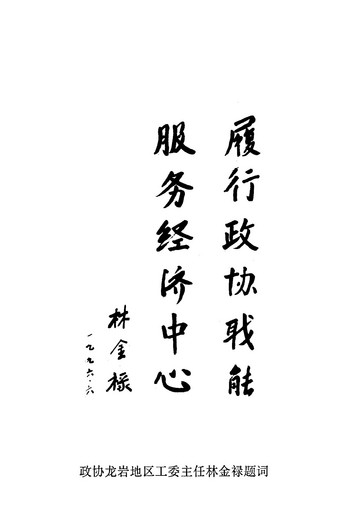 履行政协职能
服务经济中心
林金禄
一九九六·六
政协龙岩地区工委主任林金禄题词